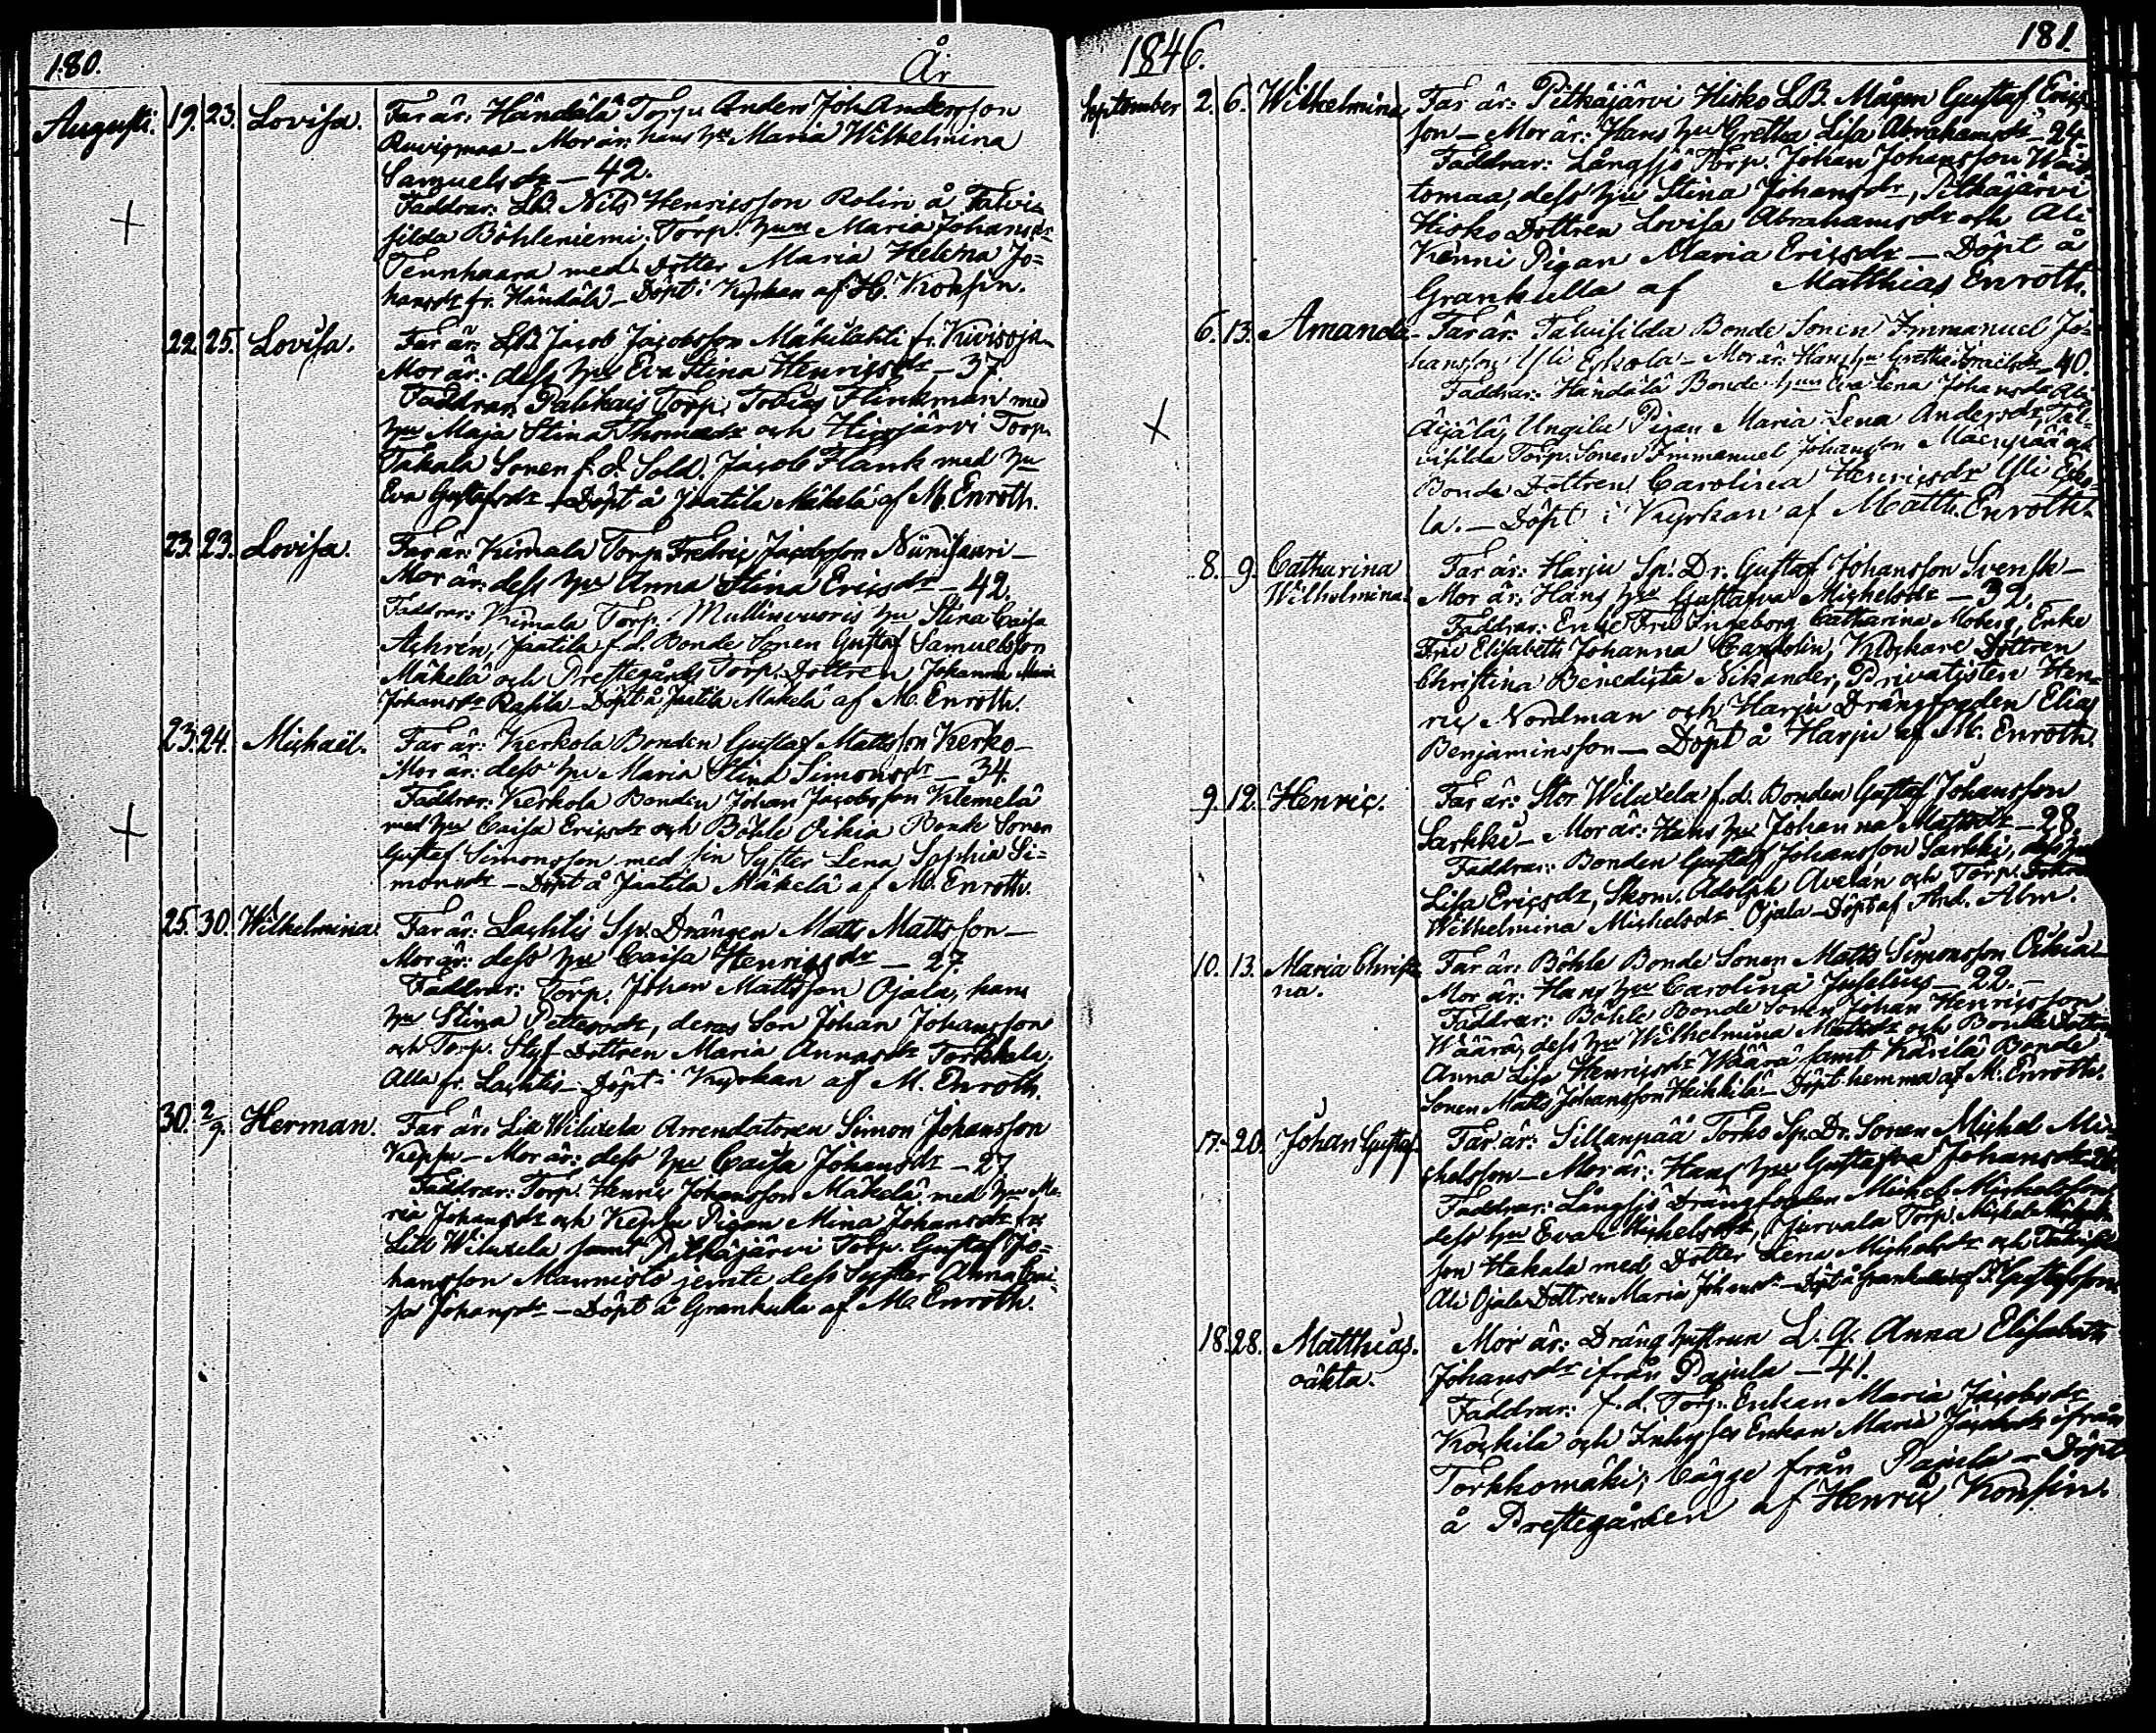 180. År
Augusti. 19. 23. Lovisa. Far är: Händälä Torp. Anders Joh Andersson
Ruvismaa – Mor är: hans hu Maria Wilhelmina
Samuelsdr – 42.
Faddrar: LB. Nils Henricsson Rolin å Talvis
silda Böhleniemi, Torp. hun Maria Johansdr
Tennhaara med Dotter Maria Helena Jo=
hansdr fr. Händälä – Döpt i Kyrkan af H. Konsin.
22. 25. Lovisa. Far är: LB Jacob Jacobsson Mäkilahti fr. Kivisoja
Mor är: dess hu Eva Stina Henricsdr – 37.
Faddrar: Palikais Torp. Tobias Flinkman med
hu Maja Stina Thomasdr och Hirsjärvi Torp.
Takala Sonen f.d. Sold. Jacob Flank med hu
Eva Gustafsdr – Döpt å Jaatila Mäkelä af M. Enroth.
23. 23. Lovisa. Far är: Kimala Torp. Fredric Jacobsson Niinisauri –
Mor är: dess hu Anna Stina Ericsdr – 42.
Faddrar: Kimala Torp. Mullinvuoris hu Stina Caisa
Achrén, Jaatila f.d. Bonde Sonen Gustaf Samuelsson
Mäkelä och Prestegårds Torp. Dottren Johanna
Johansdr Rapila – Döpt å Jaatila Mäkelä af M. Enroth.
23. 24. Michaël. Far är: Kerkola Bonden Gustaf Mattsson Kerko –
Mor är: dess hu Maria Stina Simonsdr – 34.
Faddrar: Kerkola Bonden Johan Jacobsson Klemelä
med hu Caisa Ericsdr och Böhle Oikia Bonde Sonen
Gustaf Simonsson med sin Syster Lena Sophia Si=
monsdr – Döpt å Jaatila Mäkelä af M. Enroth.
25. 30. Wilhelmina. Far är: Lachtis Sp. Drängen Matts Mattsson –
Mor är: dess hu Caisa Henricsdr – 27.
Faddrar: Torp. Johan Mattsson Ojala, hans
hu Stina Pettersdr, deras Son Johan Johansson
och Torp. Styf Dottren Maria Annasdr Torkkala,
Alla fr. Lachtis – Döpt i Kyrkan af M. Enroth.
30. 2/9. Herman. Far är: Lill Wiluxela Arrendatoren Simon Johansson
Keppu – Mor är: dess hu Caisa Johansdr – 27
Faddrar: Torp. Henric Johansson Mäkelä med hu Ma-
ria Johansdr och Keppu Pigan Mina Johansdr fr.
Lill Wiluxela samt Pitkäjärvi Torp. Gustaf Jo=
hansson Mannisto jemte dess Syster Anna Cai-
sa Johansdr – Döpt å Grankulla af M. Enroth.
1846. 181.
September 2. 6. Wilhelmina Far är: Pitkäjärvi Hisko LB. Mågen Gustaf Erics
son – Mor är: Hans hu Gretha Lisa Abrahamsdr – 24.
Faddrar: Långsjö Torp. Johan Johansson Wais
tomaa, dess hu Stina Johansdr, Pitkäjärvi
Hisko Dottren Lovisa Abrahamsdr och Ali
Kenni Pigan Maria Ericsdr – Döpt å
Grankulla af Matthias Enroth.
6. 13. Amanda. Far är: Talvisilda Bonde Sonen Immanuel Jo-
hansson Yli Eskola – Mor är: Hans hu Gretha Israelsdr – 40.
Faddrar: Händälä Bonde hun Eva Lena Johansdr Ali
Äijälä, Ungila Pigan Maria Lena Andersdr Tal-
visilda Torp. Sonen Immanuel Johansson Mäenpää och
Bonde Dottren Carolina Henricsdr Yli Esko-
la. – Döpt i Kyrkan af Matth. Enroth.
8. 9. Catharina Far är: Harju Sp. Dr. Gustaf Johansson Svensk –
Wilhelmina. Mor är: Hans hu Gustafva Michelsdr – 32. –
Faddrar: Enke Fru Ingeborg Catharina Moberg, Enke
Fru Elisabeth Johanna Candolin, Klockare Dottren
Christina Benedicta Nikander, Privatisten Hen=
ric Nordman och Harju Drängfogden Elias
Benjaminsson – Döpt å Harju af M. Enroth.
9. 12. Henric. Far är: Stor Wiluxela f.d. Bonden Gustaf Johansson
Sarkki – Mor är: Hans hu Johanna Mattsdr – 28.
Faddrar: Bonden Gustaf Johansson Sarkki, dess hu
Lisa Ericsdr, Skom. Adolph Avelan och Torp. Dottren
Wilhelmina Michelsdr Ojala – Döpt af And. Alm.
10. 13. Maria Christi Far är: Böhle Bonde Sonen Matts Simonsson Oikia –
na. Mor är: Hans hu Carolina Juselius – 22. –
Faddrar: Böhle Bonde Sonen Johan Henricsson
Wäärä, dess hu Wilhelmina Mattsdr och Bonde Dottren
Anna Lisa Henricsdr Wäärä samt Kärilä Bonde
Sonen Matts Johansson Heikkilä – Döpt hemma af M. Enroth.
17. 20. Johan Gustaf. Far är: Sillanpää Torko Sp. Dr. Sonen Michel Mi-
chelsson – Mor är: Hans hu Gustafva Johansdr 26.
Faddrar: Långsjö Drängfogden Michel Michelsson
dess hu Eva Michelsdr, Jurvala Torp. Michel
son Hakala med Dotter Lena Michelsdr och
Ali Ojala Dottren Maria Johansdr – Döpt å Grankulla af F. Gustafsson
18. 28. Matthias. Mor är: Dräng hustrun L. q. Anna Elisabeth
oäkta. Johansdr ifrån Pajula – 41.
Faddrar: f.d. Torp. Enkan Maria Jacobsdr
Kockila och Inhyses Enkan Maria ifrån
Torkkomäki; bägge från Pajula – Döpt
å Prestegården af Henric Konsin.